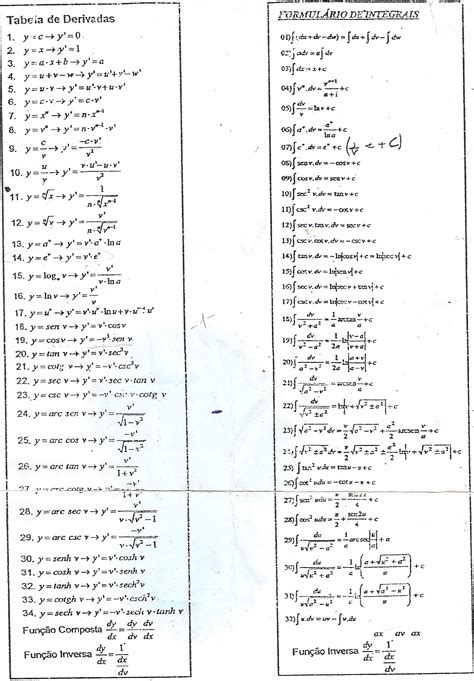 Tabela de Derivadas
1. y = c → y' = 0
2. y = x → y' = 1
3. y = a · x + b → y' = a
4. y = u + v − w → y' = u' + v' − w'
5. y = u · v → y' = u' · v + u · v'
6. y = c · v → y' = c · v'
7. y = xⁿ → y' = n · xⁿ⁻¹
8. y = vⁿ → y' = n · vⁿ⁻¹ · v'
9. y = c/v → y' = −c · v'/v²
10. y = u/v → y' = (v · u' − u · v')/v²
11. y = ⁿ√x → y' = 1/(n · ⁿ√xⁿ⁻¹)
12. y = ⁿ√v → y' = v'/(n · ⁿ√vⁿ⁻¹)
13. y = aᵛ → y' = v' · aᵛ · ln a
14. y = eᵛ → y' = v' · eᵛ
15. y = logₐ v → y' = v'/(v · ln a)
16. y = ln v → y' = v'/v
17. y = uᵛ → y' = v' · uᵛ · ln u + v · uᵛ⁻¹ · u'
18. y = sen v → y' = v' · cos v
19. y = cos v → y' = −v' · sen v
20. y = tan v → y' = v' · sec² v
21. y = cotg v → y' = −v' · csc² v
22. y = sec v → y' = v' · sec v · tan v
23. y = csc v → y' = −v' · csc v · cotg v
24. y = arc sen v → y' = v'/√(1 − v²)
25. y = arc cos v → y' = −v'/√(1 − v²)
26. y = arc tan v → y' = v'/(1 + v²)
27. y = arc cotg v → y' = −v'/(1 + v²)
28. y = arc sec v → y' = v'/(v · √(v² − 1))
29. y = arc csc v → y' = −v'/(v · √(v² − 1))
30. y = senh v → y' = v' · cosh v
31. y = cosh v → y' = v' · senh v
32. y = tanh v → y' = v' · sech² v
33. y = cotgh v → y' = −v' · csch² v
34. y = sech v → y' = −v' · sech v · tanh v
Função Composta dy/dx = dy/dv · dv/dx
Função Inversa dy/dx = 1/(dx/dv)
FORMULÁRIO DE INTEGRAIS
01) ∫(du + dv − dw) = ∫du + ∫dv − ∫dw
02) ∫adv = a∫dv
03) ∫dx = x + c
04) ∫vⁿ.dv = vⁿ⁺¹/(n + 1) + c
05) ∫dv/v = ln v + c
06) ∫aᵛ.dv = aᵛ/ln a + c
07) ∫eᵛ.dv = eᵛ + c
08) ∫sen v.dv = −cos v + c
09) ∫cos v.dv = sen v + c
10) ∫sec² v.dv = tan v + c
11) ∫csc² v.dv = −cot v + c
12) ∫sec v.tan v.dv = sec v + c
13) ∫csc v.cot v.dv = −csc v + c
14) ∫tan v.dv = −ln|cos v| + c = ln|sec v| + c
15) ∫cot v.dv = ln|sen v| + c
16) ∫sec v.dv = ln|sec v + tan v| + c
17) ∫csc v.dv = ln|csc v − cot v| + c
18) ∫dv/(v² + a²) = 1/a arctan v/a + c
19) ∫dv/(v² − a²) = 1/2a ln|(v − a)/(v + a)| + c
20) ∫dv/(a² − v²) = 1/2a ln|(a + v)/(a − v)| + c
21) ∫dv/√(a² − v²) = arcsen v/a + c
22) ∫dv/√(v² ± a²) = ln|v + √(v² ± a²)| + c
23) ∫√(a² − v²) dv = v/2 √(a² − v²) + a²/2 arcsen v/a + c
24) ∫√(v² ± a²) dv = v/2 √(v² ± a²) ± a²/2 ln|v + √(v² ± a²)| + c
25) ∫tan² u du = tan u − u + c
26) ∫cot² u du = −cot u − u + c
27) ∫sen² u du = u/2 − sen2u/4 + c
28) ∫cos² u du = u/2 + sen2u/4 + c
29) ∫du/(u√(u² − a²)) = 1/a arcsec |u|/a + c
30) ∫du/(u√(u² + a²)) = −1/a ln|(a + √(u² + a²))/u| + c
31) ∫du/(u√(a² − u²)) = −1/a ln|(a + √(a² − u²))/u| + c
32) ∫u.dv = uv − ∫v.du
dx dv dx
Função Inversa dy/dx = 1/(dx/dv)